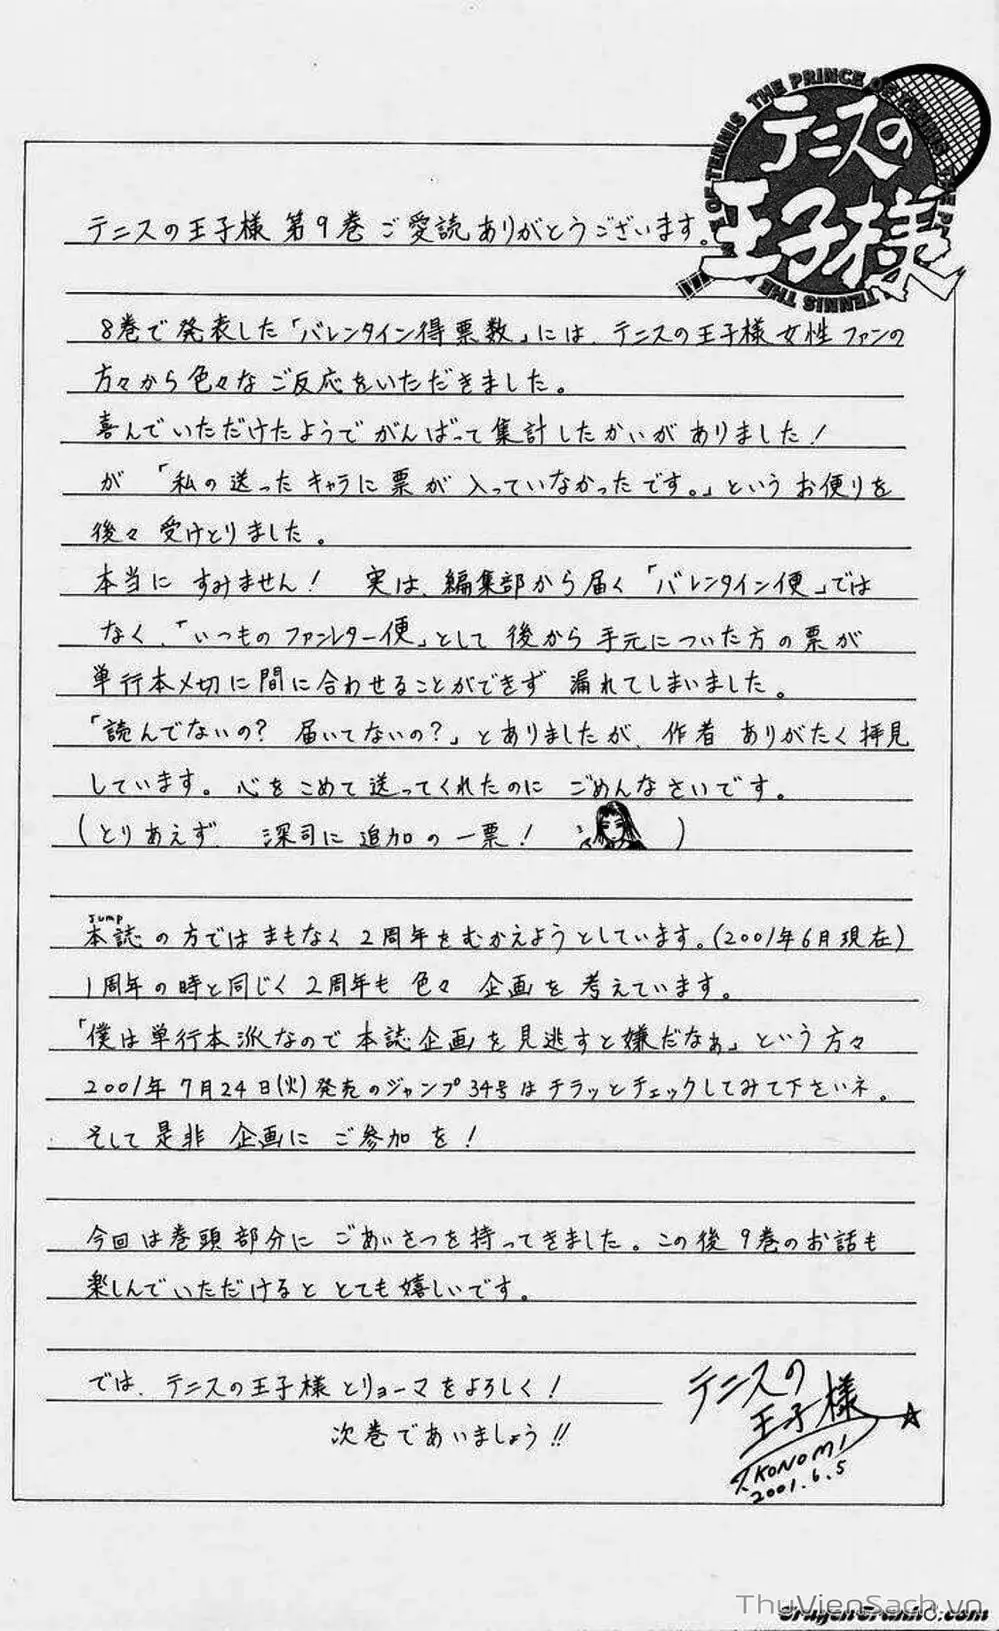 テニスの
王子様
テニスの王子様 第9巻 ご愛読ありがとうございます。
8巻で発表した「バレンタイン得票数」には、テニスの王子様女性ファンの
方々から色々なご反応をいただきました。
喜んでいただけたようでがんばって集計したかいがありました!
が「私の送ったキャラに票が入っていなかったです。」というお便りを
後々受けとりました。
本当にすみません! 実は、編集部から届く「バレンタイン便」では
なく、「いつものファンレター便」として後から手元についた方の票が
単行本〆切に間に合わせることができず漏れてしまいました。
「読んでないの? 届いてないの?」とありましたが、作者ありがたく拝見
しています。心をこめて送ってくれたのにごめんなさいです。
(とりあえず、深司に追加の一票! )
Jump
本誌の方ではまもなく2周年をむかえようとしています。(2001年6月現在)
1周年の時と同じく2周年も色々企画を考えています。
「僕は単行本派なので本誌企画を見逃すと嫌だなぁ」という方々
2001年7月24日(火)発売のジャンプ34号はチラッとチェックしてみて下さいネ。
そして是非企画にご参加を!
今回は巻頭部分にごあいさつを持ってきました。この後9巻のお話も
楽しんでいただけるととても嬉しいです。
では、テニスの王子様とリョーマをよろしく!
次巻であいましょう!!
テニスの
王子様
T.KONOMI
2001.6.5
ThuVienSach.vn